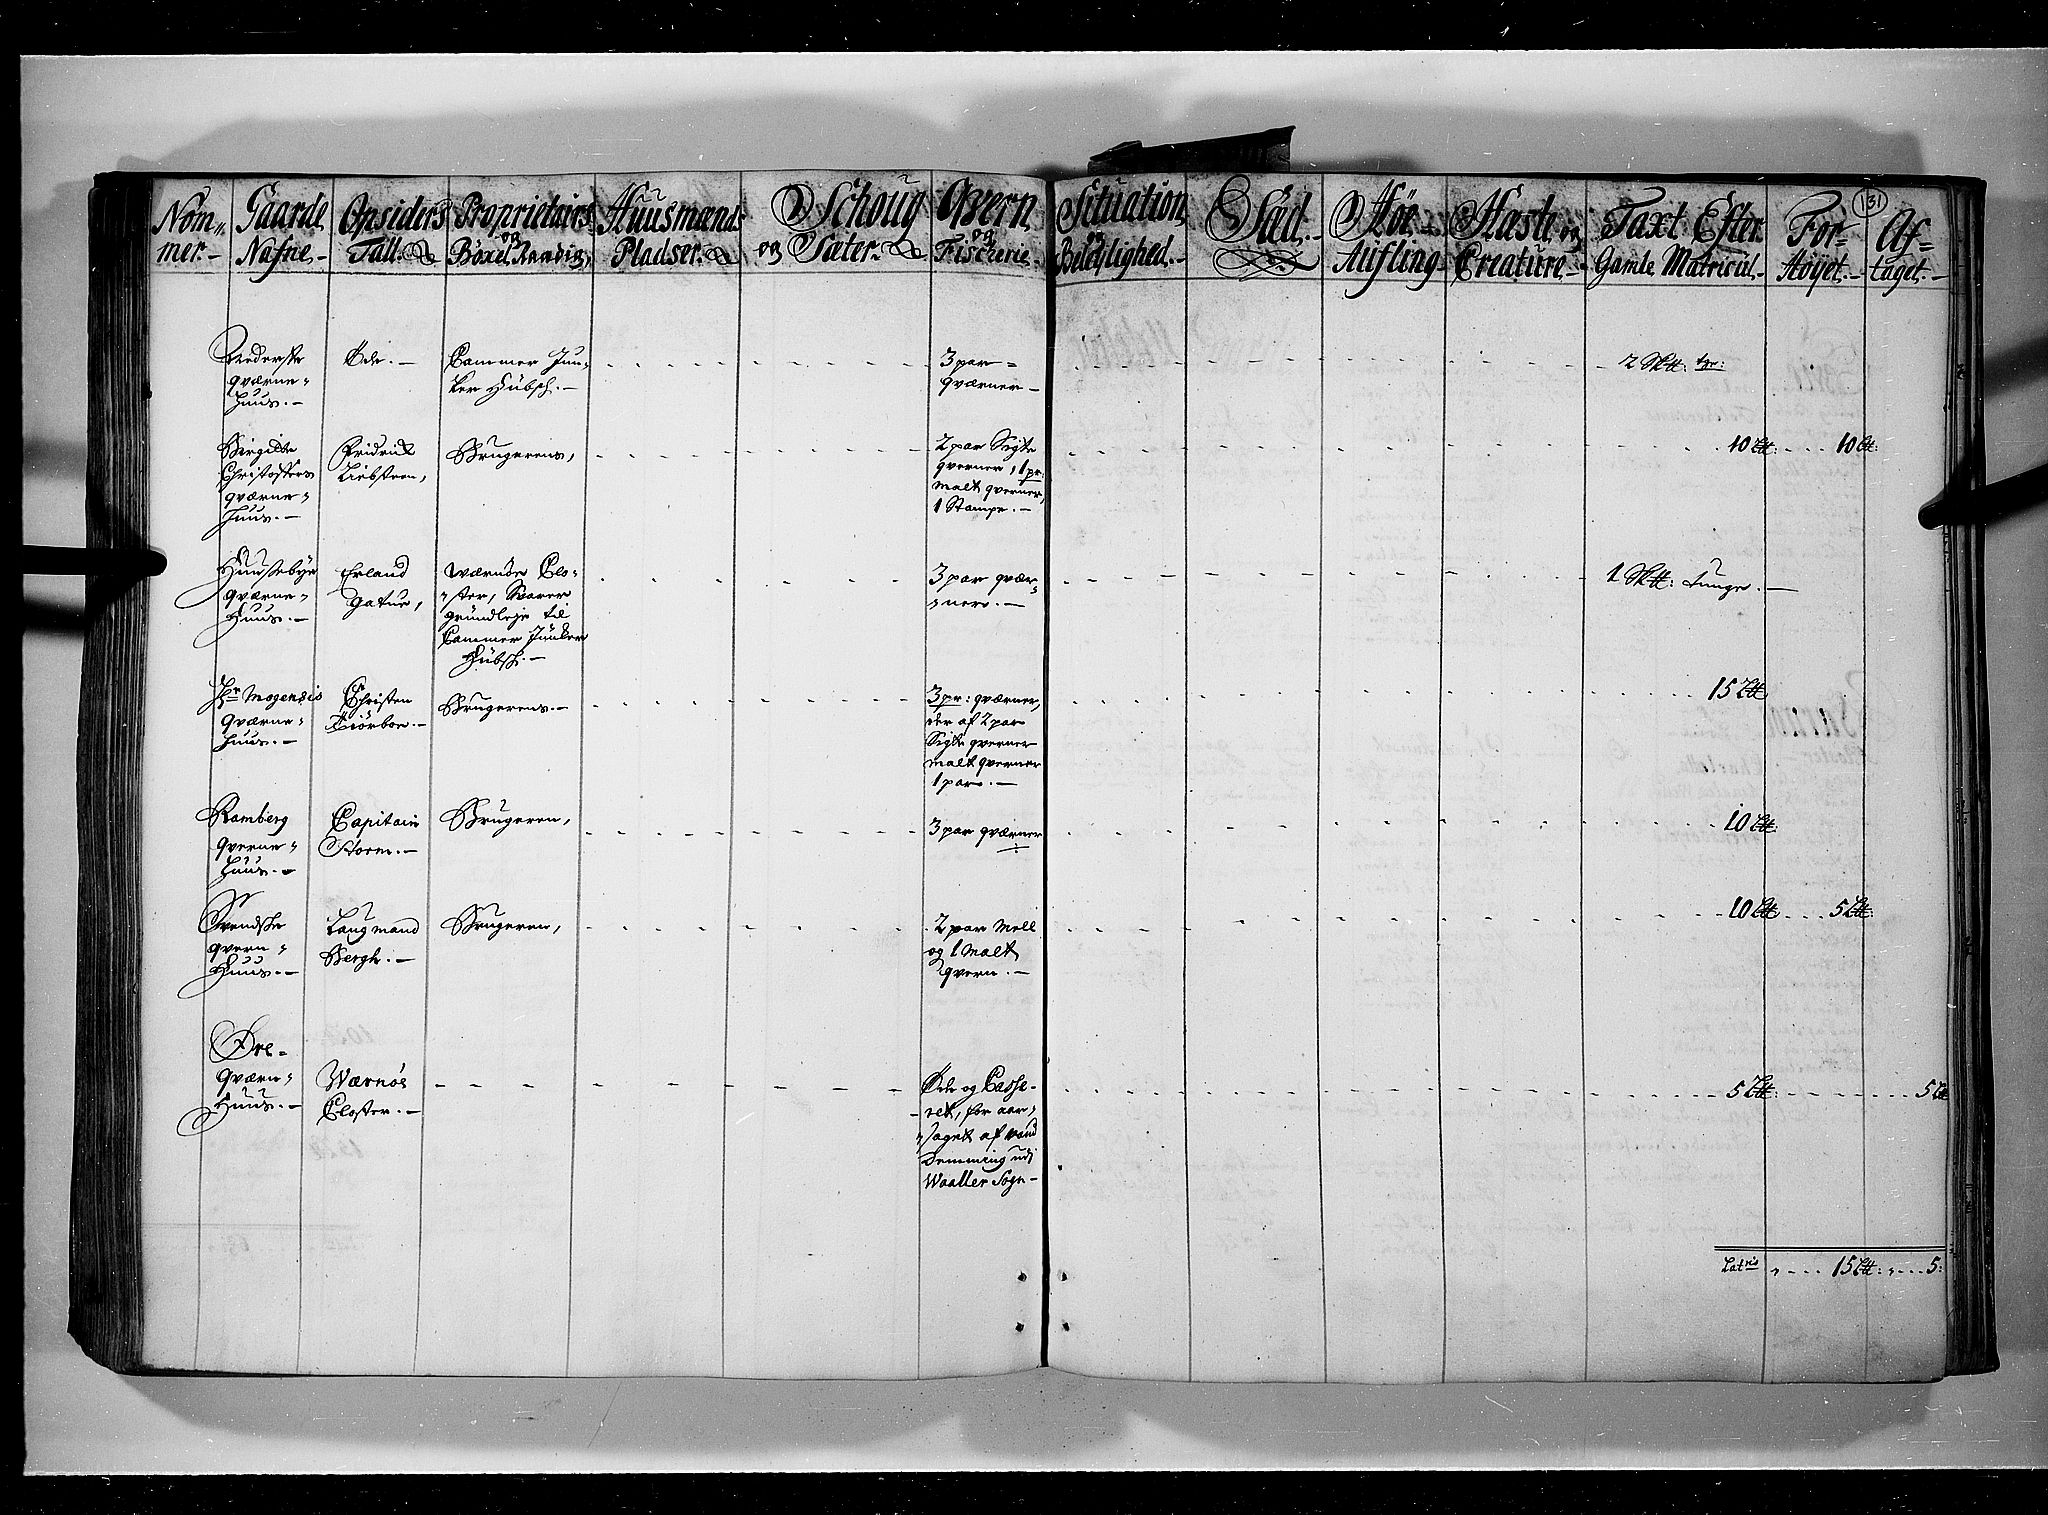 131
Nom=
mer.
Gaarde
Nafne.
Opsiders
Tall.
Proprietairs
og
Böxel Raadig,
Huusmænds
Pladser.
Schoug
og Sæter.
Qvern
og
Fischerie.
Situation
og
Beleylighed.
Sæd.
Höe
Aufling
Hæste og
Creature.
Taxt Efter
Gamle Matricul.
For=
Höyet.
Af=
taget.
Nederste
qværne=
huus.
Öde.
Cammer Jun=
ker Hübsch.
3 par
qværner
2 Skt: tge:
Birgithe
Christophers
qværne=
huus.
Fridrich
Liebsteen,
Brugerens,
2 par Sigte
qverner, 1 pr:
malt qverner,
1 Stampe.
10 Lt:
10 Lt:
Huusebye
qværne=
Huus.
Erland
Gatue,
Wærnöe Clo=
ster, Svarer
grundleje til
Cammer Junker
Hübsch.
3 par qvær=
ner.
1 Skt: tunge.
Hr Mogensis
qværne=
huus.
Christen
Fiörboe.
Brugerens.
3 pr: qværner,
der af 2 par
Sigte qverner
malt qverner
1 par.
15 Lt
Ramberg
qverne=
huus.
Capitain
Storm.
Brugeren,
3 par qværner
10 Lt:
Svendske
qvern=
Huus.
Laugmand
Bergh.
Brugeren,
2 par Mell
og 1 Malt
qvern.
10 Lt
5 Lt:
Øre=
qværn=
Huus.
Wærnöe
Closter.
Öde og Casse=
ret, for aar=
saget af vand
Demming udi
Waaller Sogn
5 Lt:
5 Lt
Latris
15 Lt:
5: